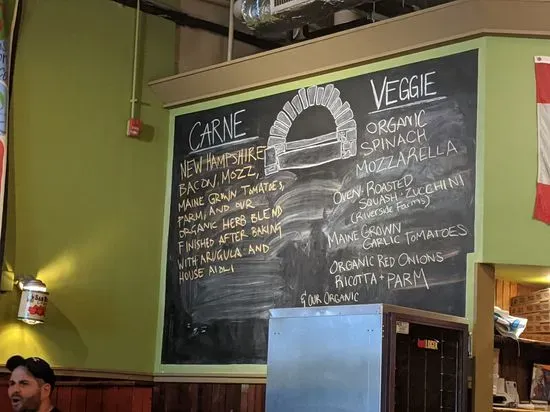 CARNE
NEW HAMPSHIRE
BACON, MOZZ,
MAINE GROWN TOMATOES,
PARM, AND OUR
ORGANIC HERB BLEND
FINISHED AFTER BAKING
WITH ARUGULA AND
HOUSE AIOLI
VEGGIE
ORGANIC
SPINACH
MOZZARELLA
OVEN-ROASTED
SQUASH-ZUCCHINI
(Riverside Farms)
MAINE GROWN
GARLIC TOMATOES
ORGANIC RED ONIONS
RICOTTA + PARM
& OUR ORGANIC